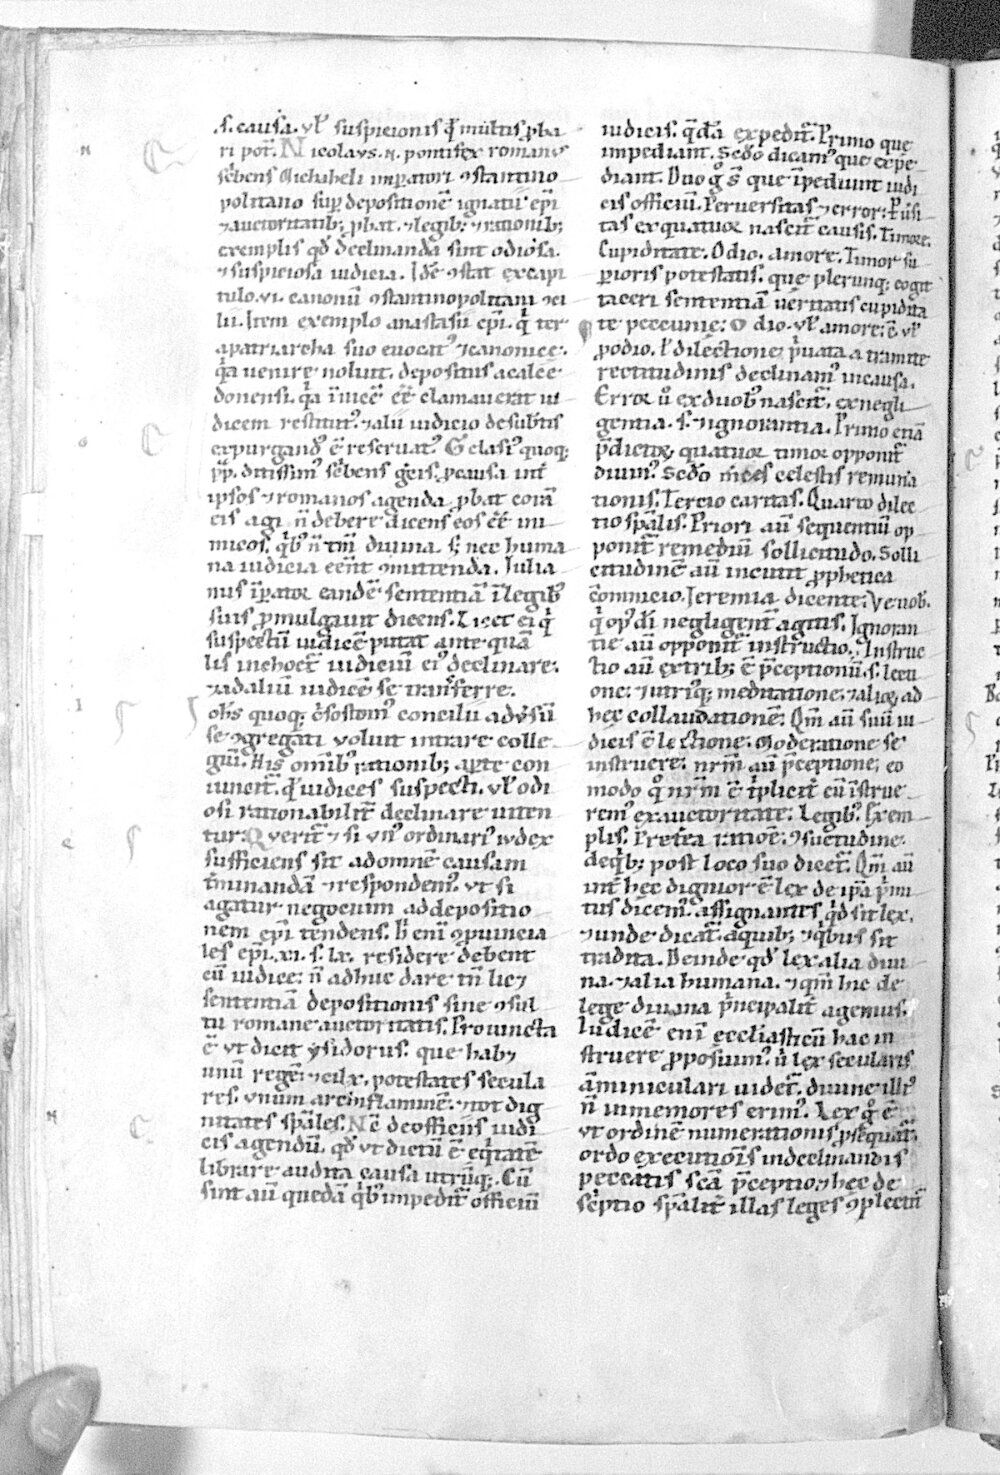 .s. causa. vł suspicionis qđ multis ꝓba
ri pot̄. Nicolaus .n. pontifex romanꝰ
sc̄bens Michaheli imꝑatori ꝯstantino
politano suꝑ depositionē ignatii ep̄i
⁊ auctoritatibꝫ ꝓbat. ⁊ legibꝫ ⁊ rationibꝫ
exemplis qđ declinanda sint odiosa.
⁊ suspiciosa iudicia. Idē ꝯstat ex capi
tulo .vi. canonū ꝯstantinopolitani ꝯci
lii. Item exemplo anastasii ep̄i. qͥ ter
a patriarcha suo euocatꝰ ⁊ canonice.
qͥa uenire noluit. depositus a calce
donensi. qͥa
dicem restitutꝰ. ⁊ alii iudicio de subitis
expurgandꝰ ē reseruatꝰ. Gelasiꝰ quoqꝫ
pp̄. ditissimꝰ sc̄bens gͣeis. ꝓ causa int̄
ipsos ⁊ romanos agenda ꝓbat corā
eis agi n̄ debere dicens eos eē ini
micos. qͥbꝰ n̄ tm̄ diuina. sꝫ nec huma
na iudicia eēnt ꝯmittenda. Iulia
nus īꝑator eandē sententiā ī legibꝰ
suis ꝓmulgauit dicens. Licet ei qͥ
suspectū iudicē putat ante quā
lis inchoet̄ iudiciū eiꝰ declinare.
⁊ ad aliū iudicē se transferre.
ohs quoqꝫ c̄sostomꝰ concilii aduͥsū
se ꝯgregati uoluit intrare colle
giū. His omībꝰ rationibꝫ aꝑte con
iuncit̄. qđ iudices suspecti. vł odi
osi rationabilit̄ declinare uiten
tur. Querit̄ ⁊ si vnꝰ ordinariꝰ iudex
sufficiens sit ad omnē causam
t̄minandā ⁊ respondemꝰ. vt si
agatur negocium ad depositio
nem ep̄i tendens. ħ eni ꝯprouincia
les ep̄i .xi. s. lx. residere debent
cū iudice: n̄ adhuc dare tn̄ licꝫ
sententiā depositionis sine ꝯsul
tu romane auctoritatis. Prouincia
ē vt dicit ysidorus. que habꝫ
unū regē ⁊ potestates secula
res. vnum archiflaminē. ⁊ tot dig
nitates sp̄ales. Nc̄ de officiis iudi
cis agendū. qđ vt dictū ē eqͥtatē
librare audita causa utriꝰqꝫ. Cū
sint au͞ quedā qͥbꝰ impedit̄ officiū
iudicis. qͥbꝰdā expedit̄. Primo que
impediant. Secdo dicamꝰ que expe
diant. Duo gͦ s̄ que īpediunt iudi
cis officiū. Peruersitas ⁊ error: Puͥsi
tas ex quatuor nascit̄ causis. Timore.
Cupiditate. Odio. amore. Timor su
ꝑioris potestatis. que plerunqꝫ cogit
taceri sententiā ueritatis cupidita
te peccunie: Odio. vł amore: c̄ vł
ꝓ odio. ł dilectione pͥuata a tramite
rectitudinis declinamꝰ in causa.
Error uͦ ex duobꝰ nascit̄. ex negli
gentia .s. ⁊ ignorantia. Primo etiā
p̄dictoꝝ quatuor timor opponit̄
diuinꝰ. Secdo m̄ces celestis remunia
tionis. Tercio caritas. Quarto dilec
tio sp̄alis. Priori au͞ sequentiū op
ponit̄ remediū sollicitudo. Solli
citudinē au͞ incutit prophetica
c̄ominicio. Ieremia dicente: Ve uob.
qͥ opꝰ dī negligent̄ agitis. Ignoran
tie au͞ opponit̄ instructio. Instruc
tio au͞ ex tribꝫ ē p̄ceptionū .s. lecti
one: ⁊ utriꝰqꝫ meditatione. ⁊ alioꝝ ad
hec collaudationē: Qm̄ au͞ suū iu
dicis ē lectione. moderatione se
instruere: nr̄m au͞ p̄ceptione; eo
modo qͦ nr̄m ē īplicit̄ eū īstrue
remꝰ ex auctoritate: Legibꝰ. Exem
plis. Pretea ratiōe: ⁊ ꝯsuetudine.
de qͥbꝫ post loco suo dicet̄. Qm̄ au͞
int̄ hec dignior ē lex de ipā pͥmi
tus dicemꝰ. assignantes qͥd sit lex.
⁊ unde dicat̄. a quibꝫ ⁊ qͥbus sit
tradita. Deinde qđ lex alia diui
na. ⁊ alia humana. ⁊ qm̄ hic de
lege diuina pͥncipalit̄ agemus.
Iudicē enī ecc̄liasticū hac in
struere ꝓposuimꝰ. uͥ lex secularis
āminiculari uidet̄. diuine illiꝰ
n̄ inmemores erimꝰ. Lex gͦ ē
vt ordinē numerationis ꝓsequat̄.
ordo executiōis in declinandis
peccatis sc̄a p̄ceptio. ⁊ hec de
sc̄ptio sp̄alit̄ illas leges ꝯplectit̄